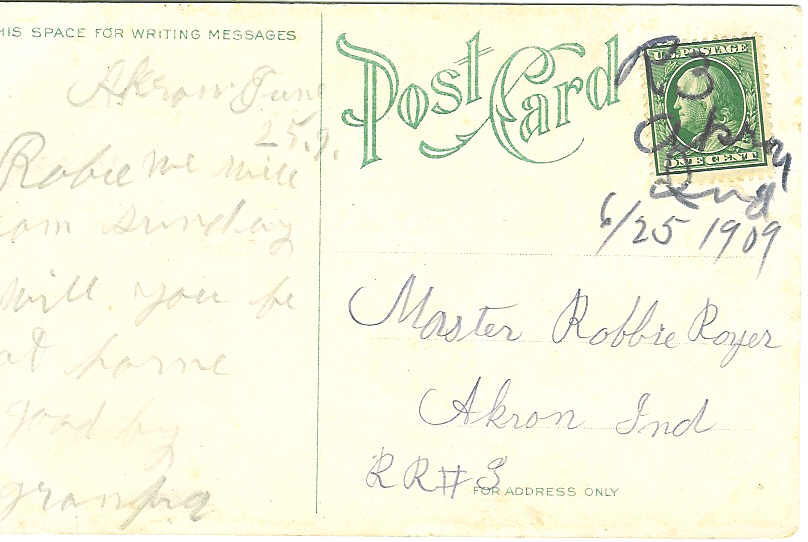 HIS SPACE FOR WRITING MESSAGES
Post Card
U.S. POSTAGE
ONE CENT
Akron June
25.9.
Robie we will
com sunday
will you be
at home
good by
granpa
R3
Akron
Ind
6/25 1909
Master Robbie Royer
Akron Ind
RR#3
FOR ADDRESS ONLY